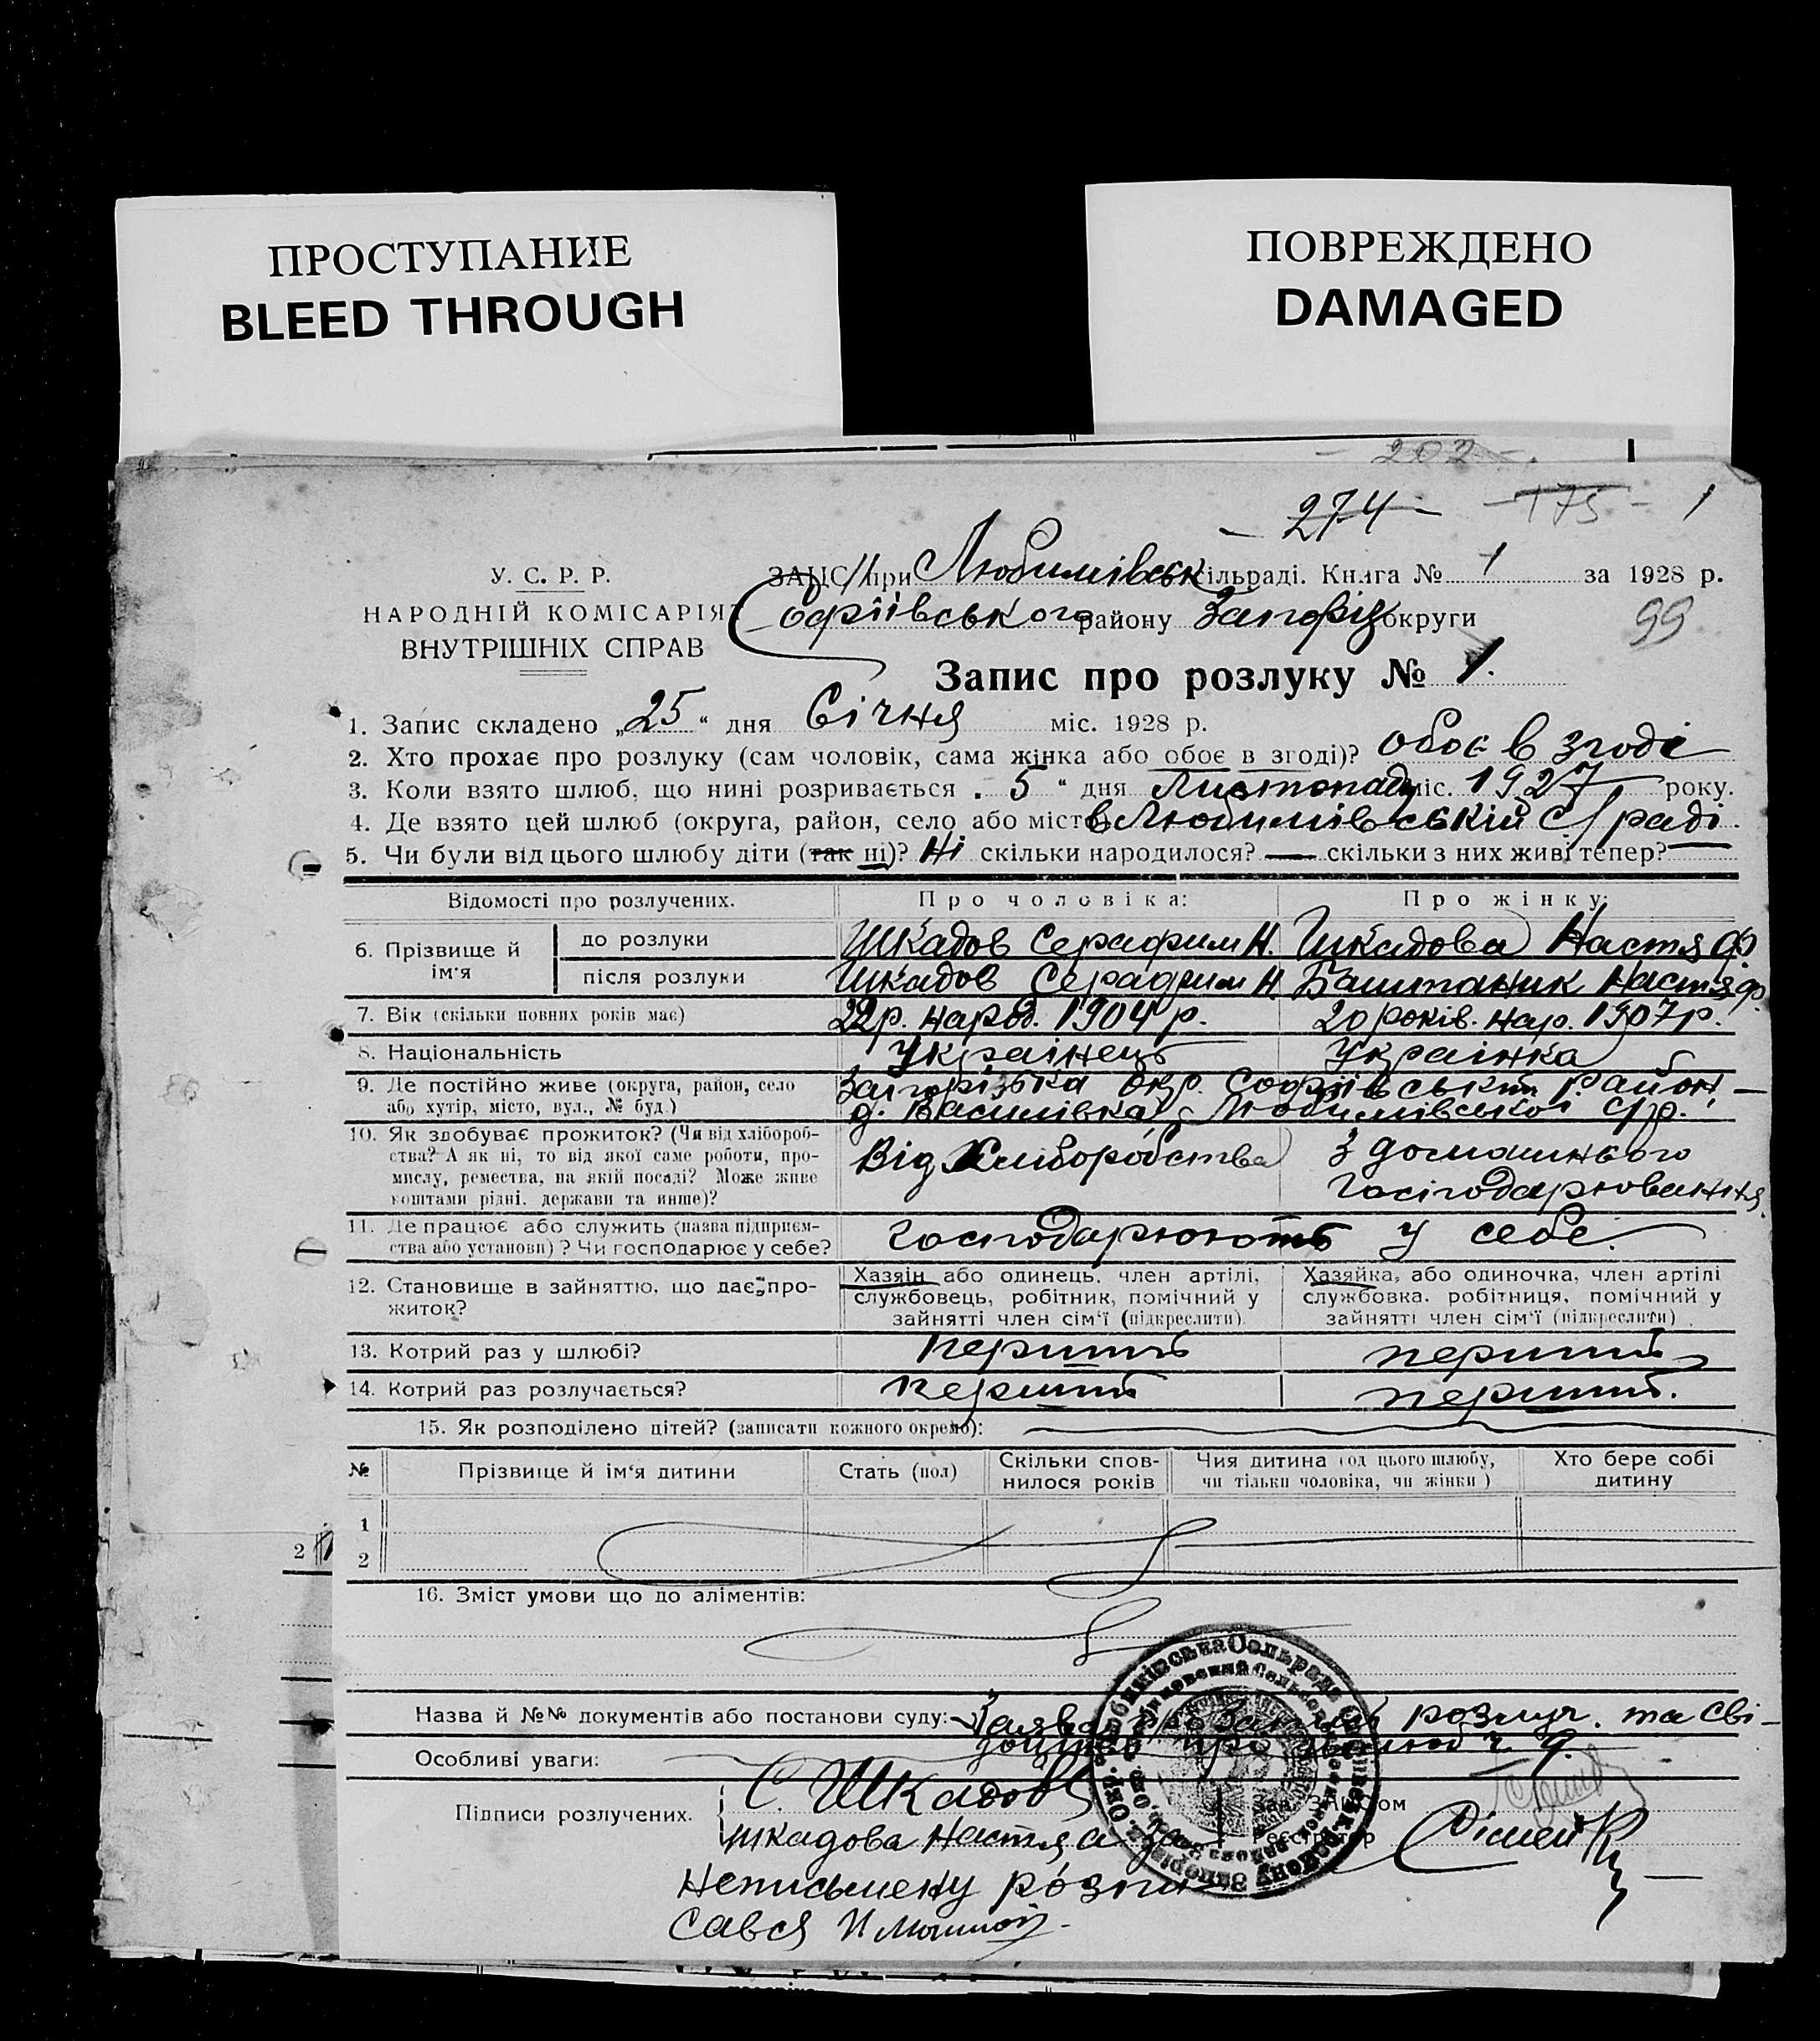 ПРОСТУПАНИЕ
BLEED THROUGH
ПОВРЕЖДЕНО
DAMAGED
- 202 -
- 274 - - 175 - 1
У. С. Р. Р.
НАРОДНІЙ КОМІСАРІЯТ
ВНУТРІШНІХ СПРАВ
ЗАЦС при Любимівськ сільраді. Книга № 1 за 1928 р.
Софіївського району Запоріз округи
99
Запис про розлуку № 1.
1. Запис складено „25“ дня Січня міс. 1928 р.
2. Хто прохає про розлуку (сам чоловік, сама жінка або обоє в згоді)? обоє в згоді
3. Коли взято шлюб, що нині розривається „ 5 “ дня Листопаду міс. 1927 року.
4. Де взято цей шлюб (округа, район, село або місто) в Любимівській с/раді.
5. Чи були від цього шлюбу діти (так ні)? Ні скільки народилося? — скільки з них живі тепер? —
Відомості про розлучених. Про чоловіка: Про жінку:
6. Прізвище й ім'я до розлуки Шкадов Серафим Н. Шкадова Настя Ф
після розлуки Шкадов Серафим Н. Баштаник Настя Ф.
7. Вік (скільки повних років має) 22 р. народ. 1904 р. 20 років. нар. 1907 р.
8. Національність Українець Українка
9. Де постійно живе (округа, район, село або хутір, місто, вул., № буд.) Запорізька Окр. Софіївський район –
д. Василівка, Любимівської с/р.
10. Як здобуває прожиток? (Чи від хліборобства? А як ні, то від якої саме роботи, промислу, ремества, на якій посаді? Може живе коштами рідні, держави та инше)? Від Хліборобства З домашнього
Господарювання.
11. Де працює або служить (назва підприємства або установи)? Чи господарює у себе? Господарюють у себе.
12. Становище в зайняттю, що дає прожиток? Хазяїн або одинець, член артілі, службовець, робітник, помічний у зайнятті член сім'ї (підкреслити). Хазяйка, або одиночка, член артілі службовка, робітниця, помічний у зайнятті член сім'ї (підкреслити).
13. Котрий раз у шлюбі? перший перший
14. Котрий раз розлучається? перший перший.
15. Як розподілено дітей? (записати кожного окремо):
№ Прізвище й ім'я дитини Стать (пол) Скільки сповнилося років Чия дитина (од цього шлюбу, чи тільки чоловіка, чи жінки) Хто бере собі дитину
1
2
2
16. Зміст умови що до аліментів:
Назва й №№ документів або постанови суду: Заява розлуч. та сві-
Особливі уваги: про шлюб ч. 9.
Підписи розлучених. С. Шкадов
Шкадова Настя а за
Неписьмену розпи
сався
Зав. ЗАЦСом
Реєстратор